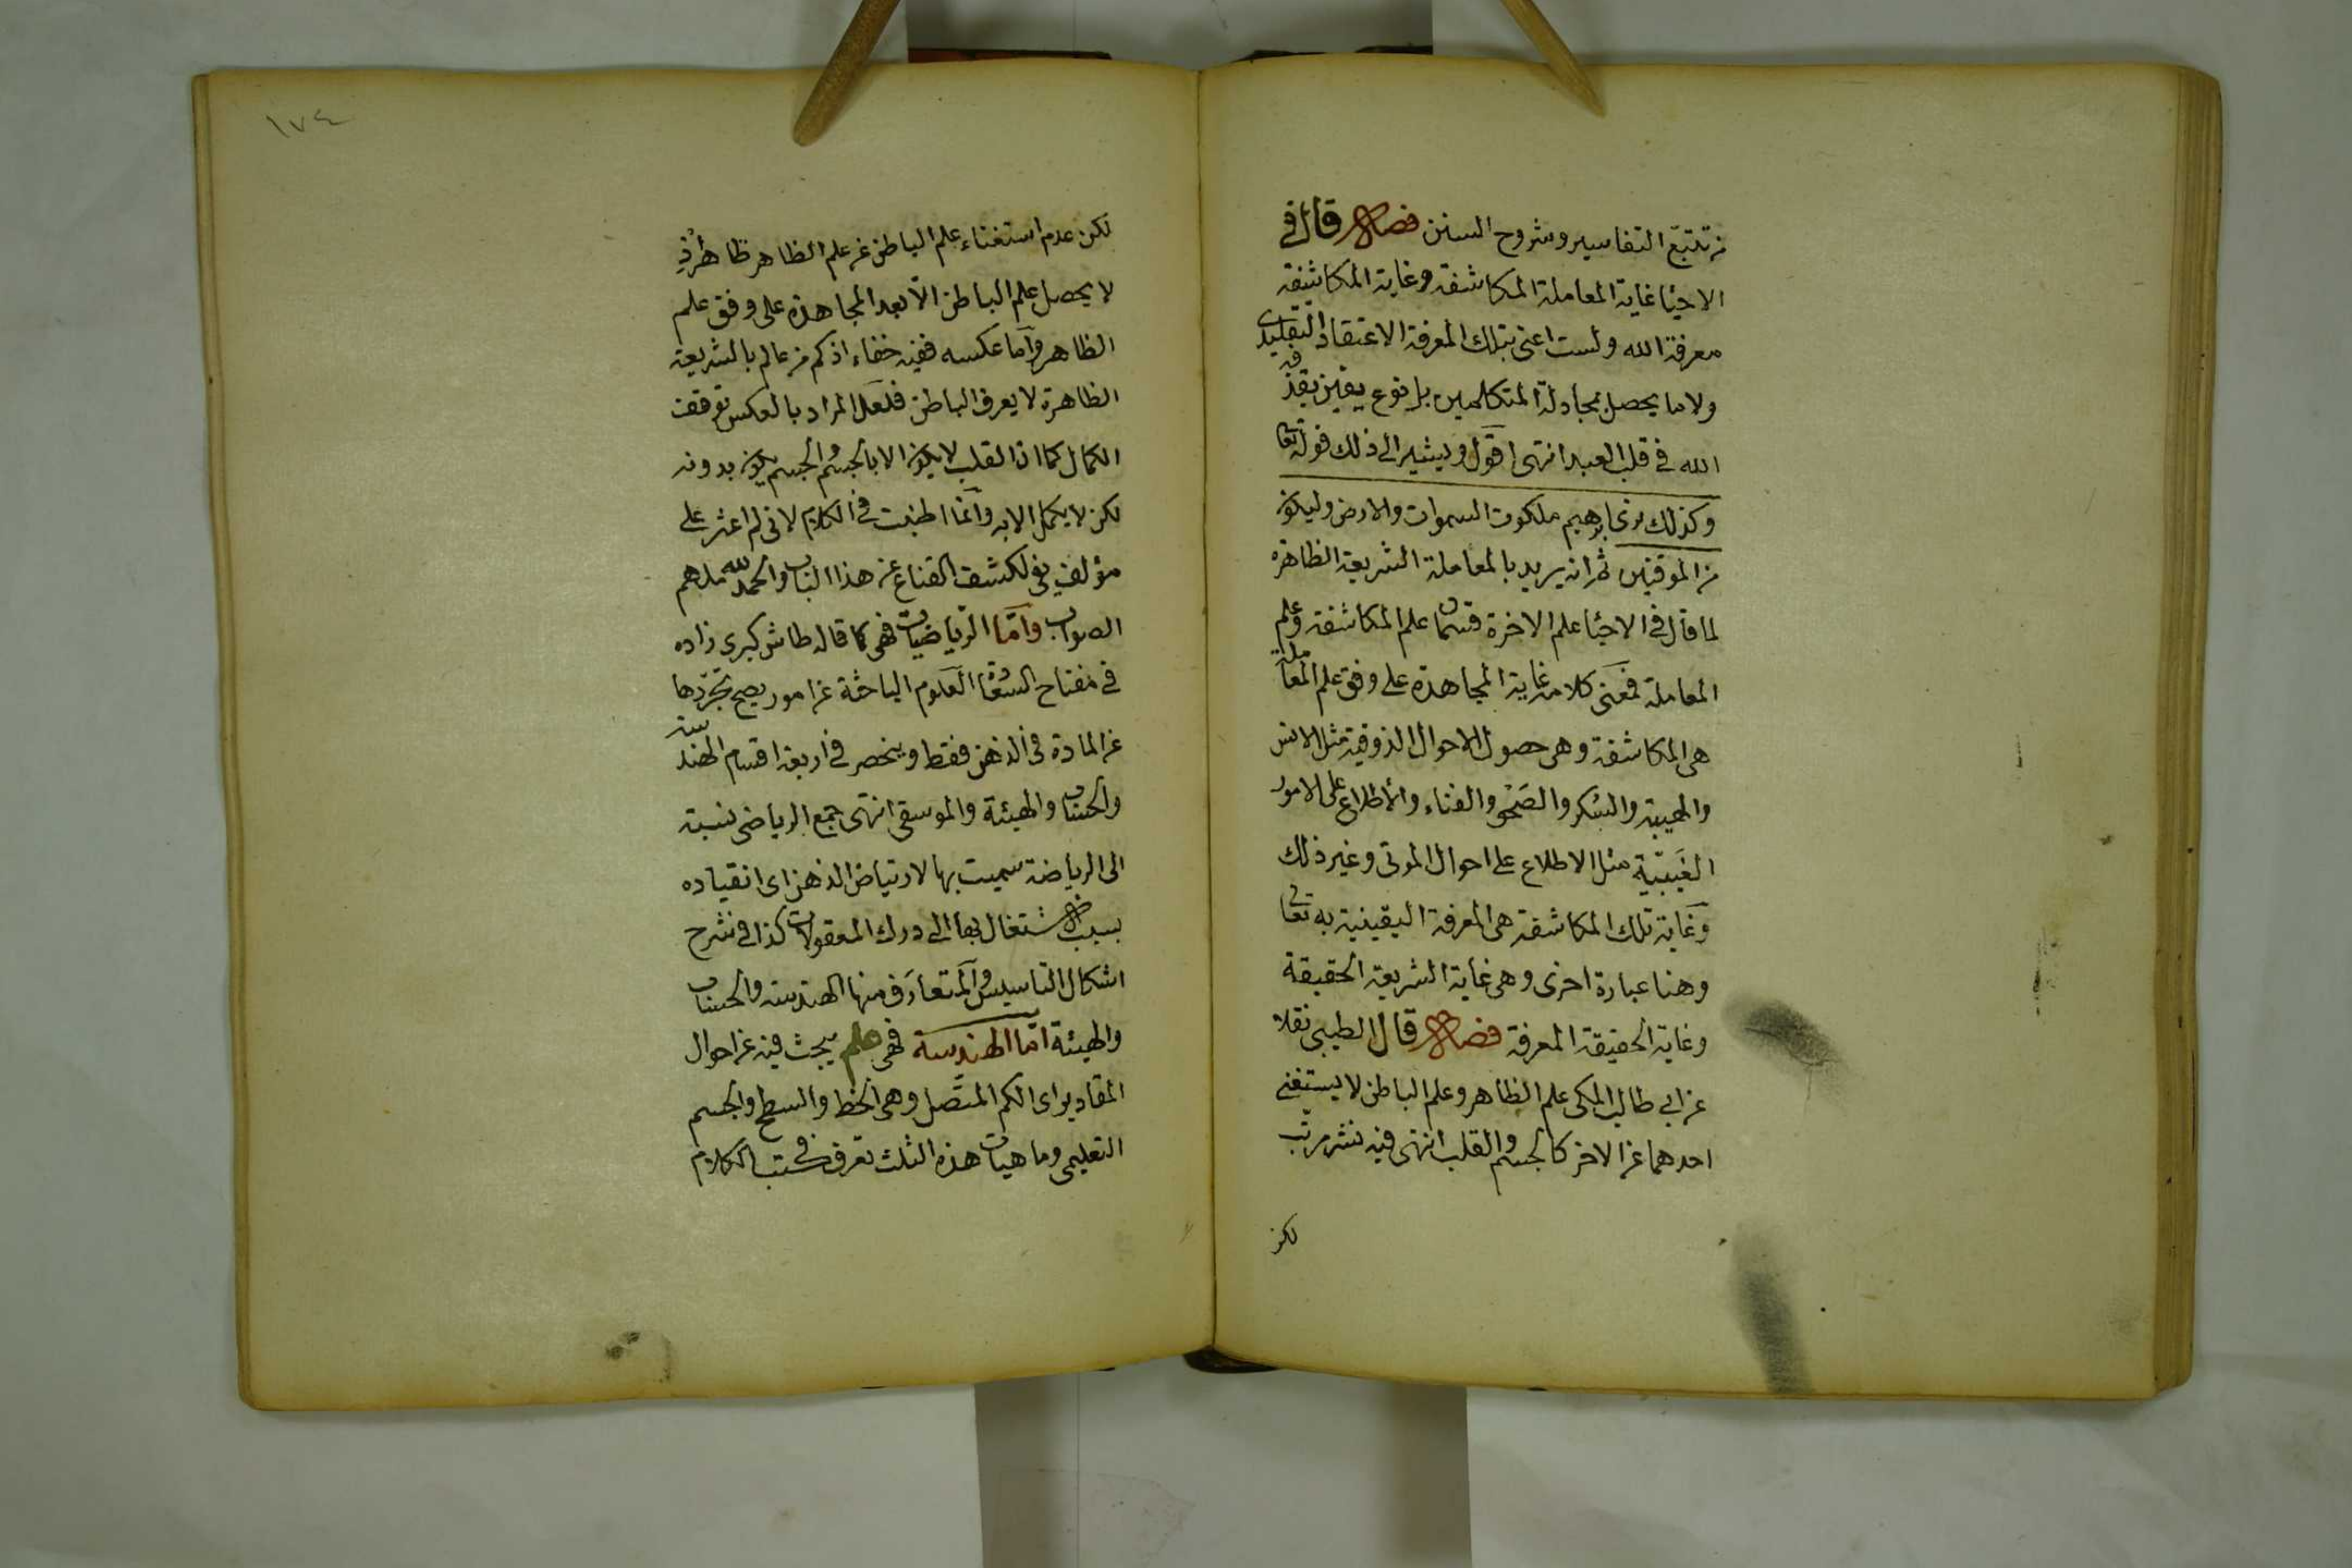 من تتبع التفاسير وشروح السنن فصل قال في
الاحيا غاية المعاملة المكاشفة وغاية المكاشفة
معرفة الله ولست اعنى بتلك المعرفة الاعتقاد التقليدى
ولا ما يحصل بمجادلة المتكلمين بل نوع يقين يقذفه
الله في قلب العبد انتهى اقول ويشير الى ذلك قوله تعا
وكذلك نرى ابرهيم ملكوت السموات والارض وليكون
من الموقنين ثم انه يريد بالمعاملة الشريعة الظاهرة
لما قال في الاحيا علم الاخرة قسمان علم المكاشفة وعلم
المعاملة فمعنى كلامه غاية المجاهدة على وفق علم المعاملة
هى المكاشفة وهى حصول الاحوال الذوقية مثل الانس
والهيبة والسكر والصحو والفناء والاطلاع على الامور
الغَيبيّة مثل الاطلاع على احوال الموتى وغير ذلك
وغاية تلك المكاشفة هى المعرفة اليقينية به تعالى
وهنا عبارة اخرى وهى غاية الشريعة الحقيقة
وغاية الحقيقة المعرفة فصل قال الطيبى نقلا
عن ابى طالب المكى علم الظاهر وعلم الباطن لا يستغنى
احدهما عن الاخر كالجسم والقلب انتهى فيه نشر مرتب
لكن
١٧٤
لكن عدم استغناء علم الباطن عن علم الظاهر ظاهر اذ
لا يحصل علم الباطن الّا بعد المجاهدة على وفق علم
الظاهر وآما عكسه ففيه خفاء اذ كم من عالم بالشريعة
الظاهرة لا يعرف الباطن فلعل المراد بالعكس توقف
الكمال كما ان القلب لا يكون الا بالجسم والجسم يكون بدونه
لكن لا يكمل الا به وآنما اطنبت في الكلام لانى لم اعثر على
مؤلف يفى لكشف القناع عن هذا الباب والحمد لله ملهم
الصواب وآمّا الريّاضيات فهى كما قاله طاش كبرى زاده
في مفتاح السّعادة العلوم الباحثة عن امور يصح تجرّدها
عن المادة في الذهن فقط وينحصر في اربعة اقسام الهندسة
والحساب والهيئة والموسقى انتهى جمع الرياضى نسبة
الى الرياضة سميت بها لارتياض الذهن اى انقياده
بسبب الاشتغال بها الى درك المعقولات كذا في شرح
اشكال التاسيس والمتعارف منها الهندسة والحساب
والهيئة امّا الهندسة فهى علم يبحث فيه عن احوال
المقادير اى الكم المتّصل وهى الخط والسطح والجسم
التعليمى وماهيات هذه الثلث تعرف في كتب الكلام